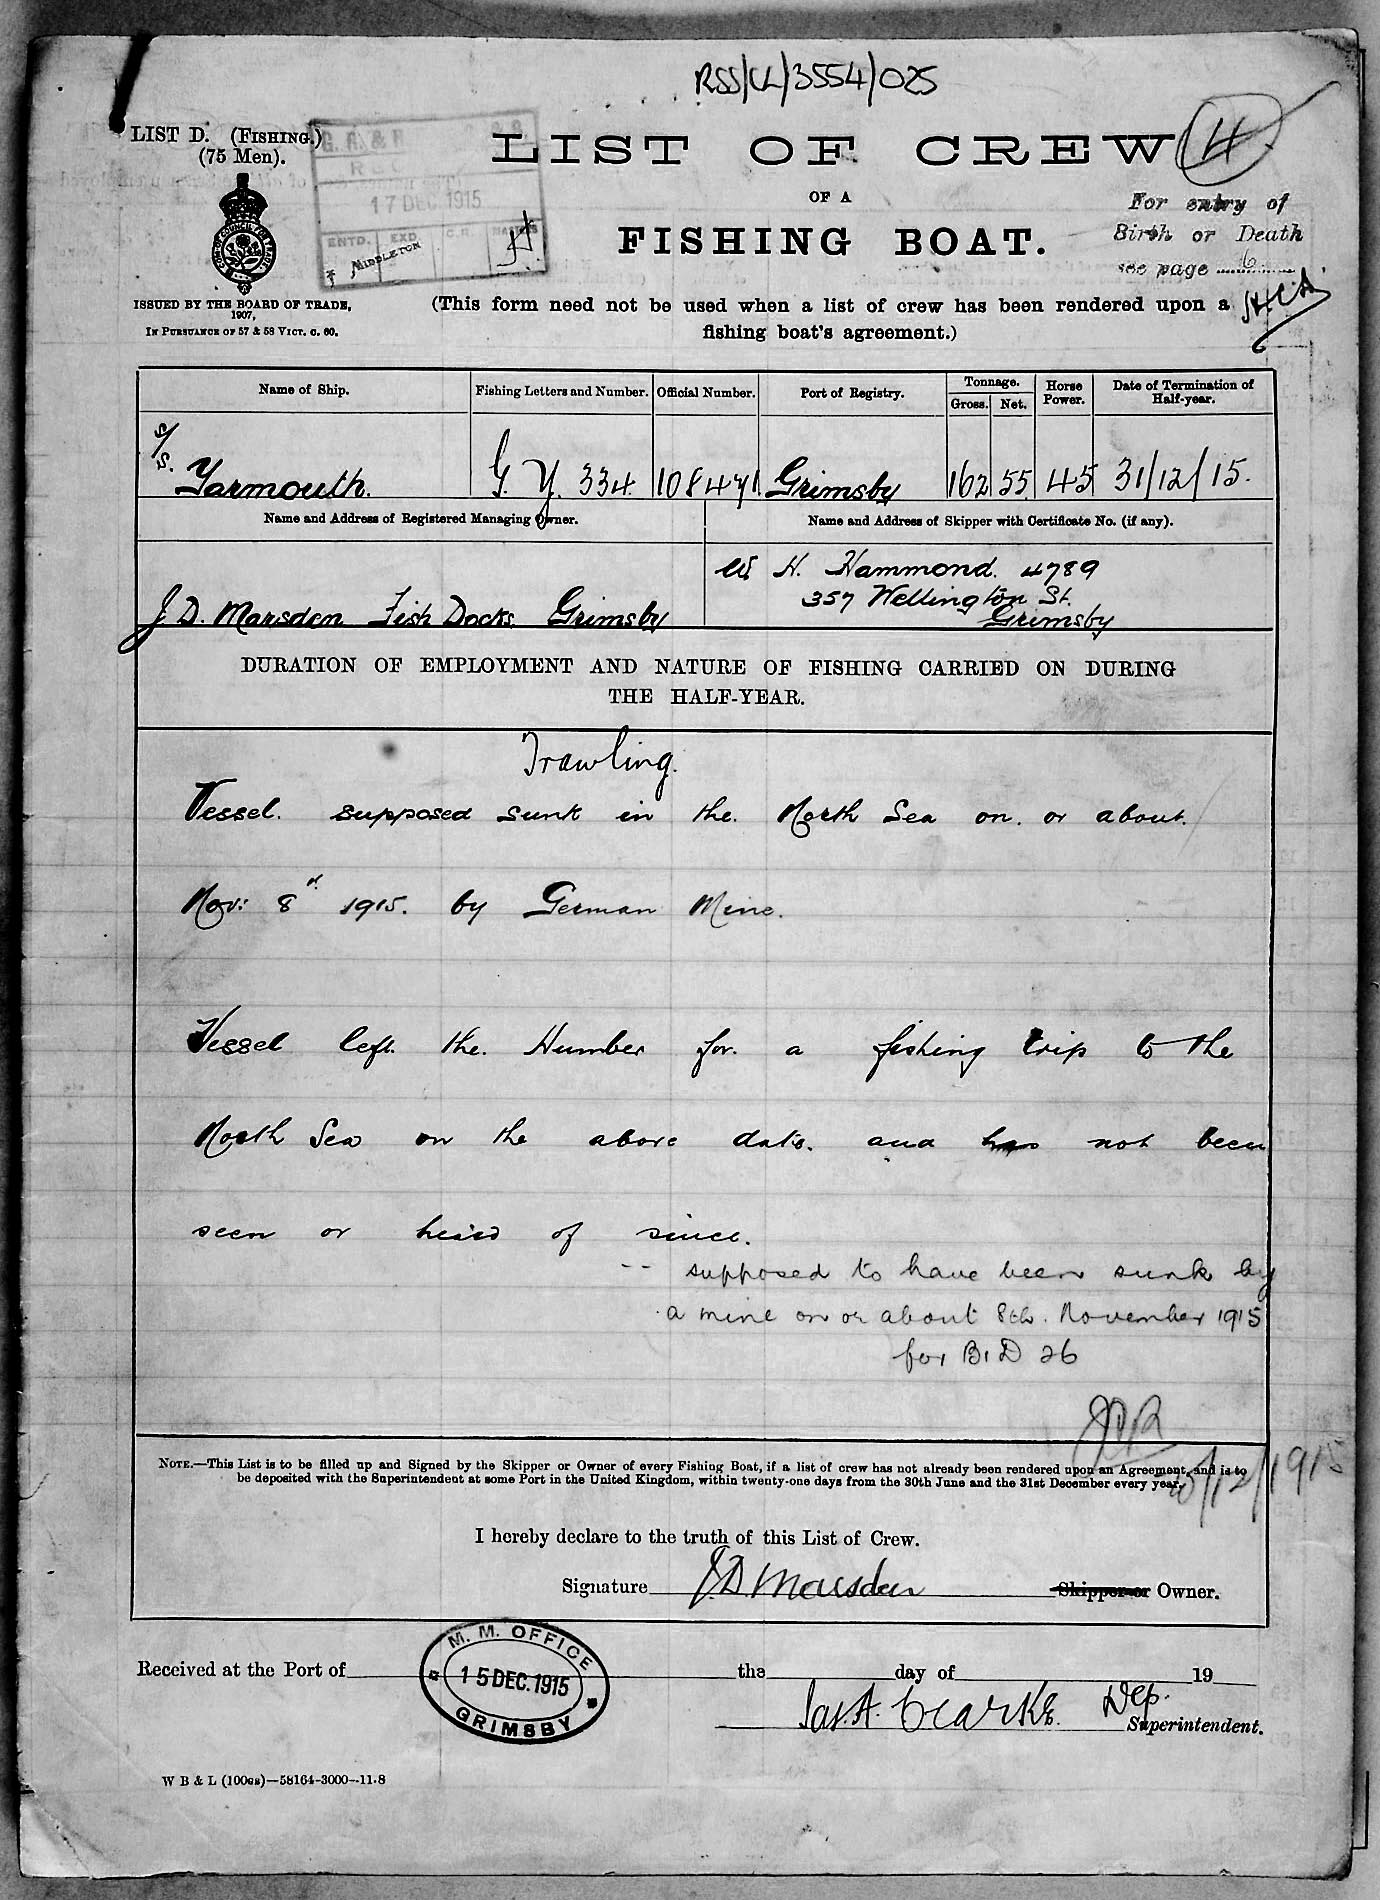 RSS/CL/3554/025
LIST D. (FISHING.)
(75 Men).
G. R. & R
REC
17 DEC 1915
ENTD. EXD. C.R. MASTERS
MIDDLETON
LIST OF CREW
H
OF A
FISHING BOAT.
For entry of
Birth or Death
see page 6
ISSUED BY THE BOARD OF TRADE,
1907,
IN PURSUANCE OF 57 & 58 VICT. C. 60.
(This form need not be used when a list of crew has been rendered upon a
fishing boat's agreement.)
Name of Ship. Fishing Letters and Number. Official Number. Port of Registry. Tonnage. Horse Power. Date of Termination of Half-year.
Gross. Net.
S/S. Yarmouth. G.Y. 334 108471 Grimsby 162 55 45 31/12/15.
Name and Address of Registered Managing Owner. Name and Address of Skipper with Certificate No. (if any).
W H. Hammond. 4789
357 Wellington St.
Grimsby
J D. Marsden Fish Docks. Grimsby
DURATION OF EMPLOYMENT AND NATURE OF FISHING CARRIED ON DURING
THE HALF-YEAR.
Trawling.
Vessel. supposed sunk in the. North Sea on. or about.
Nov: 8 1915. by German Mine.
Vessel left the. Humber for. a fishing trip to the
North Sea on the above date. and has not been
seen or heard of since.
-- supposed to have been sunk by
a mine on or about 8th. November 1915
for B.I.D 26
/12/1915
NOTE.—This List is to be filled up and Signed by the Skipper or Owner of every Fishing Boat, if a list of crew has not already been rendered upon an Agreement, and is to
be deposited with the Superintendent at some Port in the United Kingdom, within twenty-one days from the 30th June and the 31st December every year.
I hereby declare to the truth of this List of Crew.
Signature J.D. Marsden Skipper or Owner.
M. M. OFFICE
15 DEC. 1915
GRIMSBY
Received at the Port of the day of 19
Jas. A. Clarke. Dep.
Superintendent.
W B & L (100gs)—58164-3000--11-8